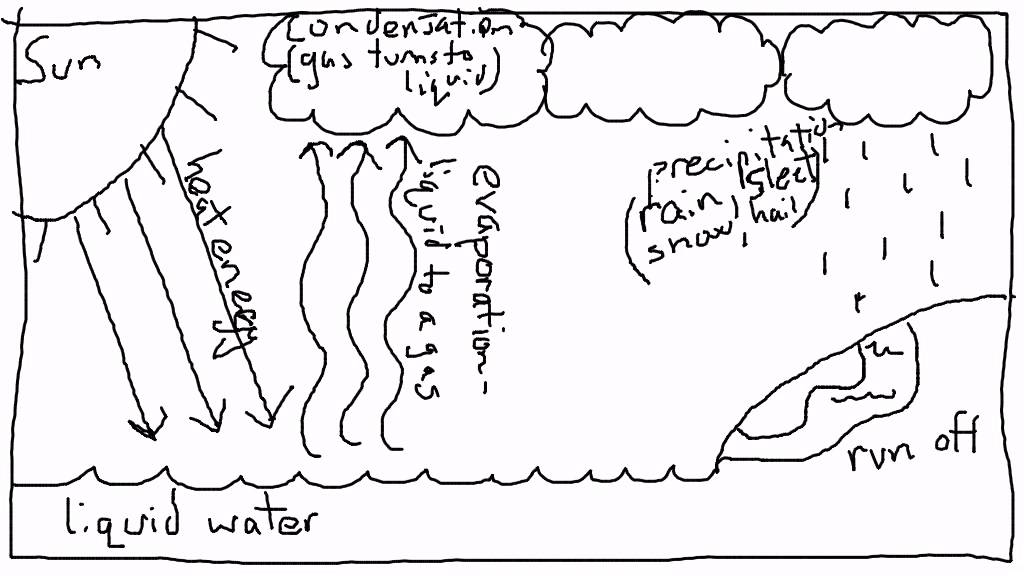 Sun
Condensation
(gas turns to
liquid)
heat energy
evaporation-
liquid to a gas
Precipitation
(rain, sleet
snow, hail)
run off
liquid water